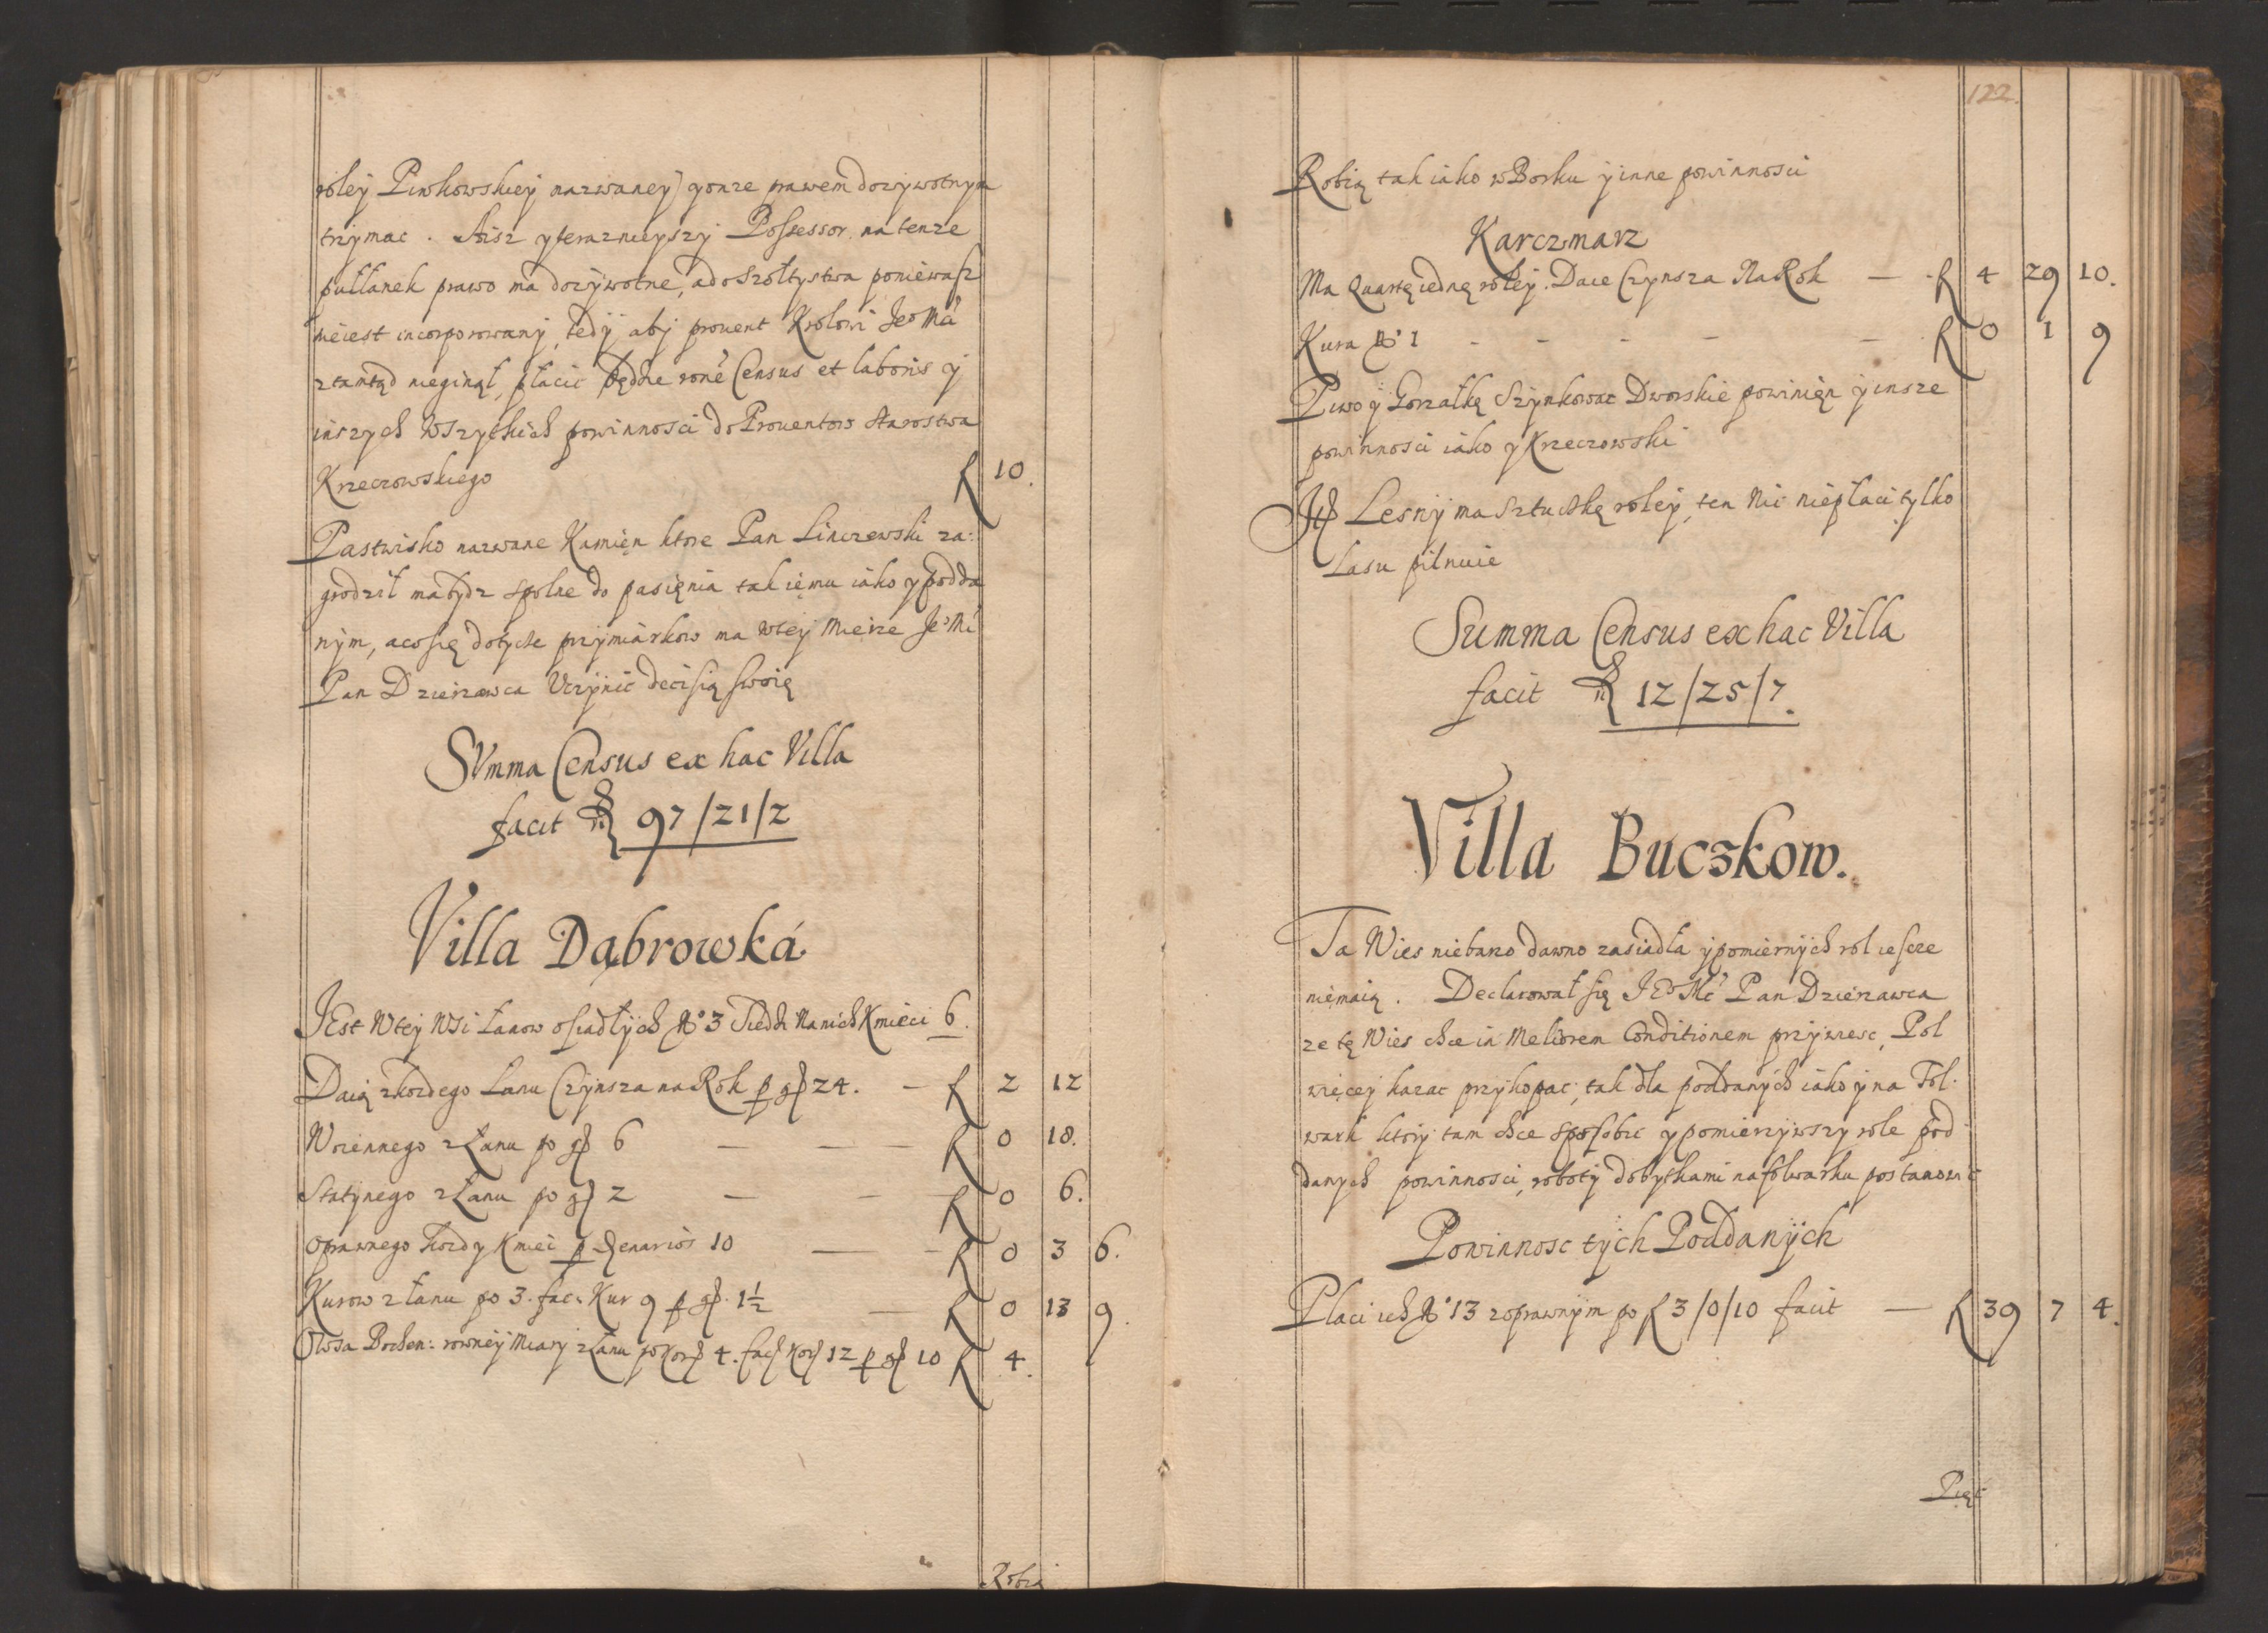 roley Piwkowskiey nazwaney) gonze prawem dozywotnym
trzymac. Aisz y terazneyszy Possessor na tenze
pułłanek prawo ma dozywotne, a do Szołtystwa poniewasz
nieiest incorporowany, tedy aby prouent Krolowi Jeo Mci
ztamtąd nieginął, płacic będzie rone Census et laboris y
inszych wszytkich powinnosci do Prouentow Starostwa
Krzeczowskiego f 10.
Pastwisko nazwane Kamięn ktore Pan Linczewski za:
grodził ma bydz spolne do pasięnia tak iemu iako y podda
nym, aco się dotycze przymiarkow ma wtey mierze Jeo Mc
Pan Dzierzawca Uczynic decisią swoię
SVmma Census ex hac Villa
facit f 97/21/2
Villa Dąbrowká
JEst wtey Wsi Łanow osiadłych No 3 Siedzi Na nich Kmieci 6.
Daią zkozdego Łanu Czynsza na Rok p gł 24. — f 2 12
Woiennego z Łanu po gł 6 — — — f 0 18.
Statynego z Łanu po gł 2 — — — f 0 6.
Oprawnego kozdy Kmieć p denarios 10 — — f 0 3 6.
Kurow z łanu po 3. fac: Kur 9 p gł. 1½ — f 0 13 9.
Owsa Bochen: rowney Miary z Łanu po Kor 4. fac Kor 12 p gł 10 f 4.
Robią
122.
Robią tak iako w Borku y inne powinnosci
Karczmarz
Ma Quartę iednę roley. Daie Czynsza Na Rok — f 4 29 10.
Kura No 1 - - - - — f 0 1 9
Piwo y Gorzałkę Szynkowac Dworskie powinięn y insze
powinnosci iako y Krzeczowski
Jtẽ Lesny ma Sztuczkę roley, ten Nic niepłaci tylko
Lasu pilnuie
Summa Census ex hac Villa
facit f 12/25/7.
Villa Buczkow.
Ta Wies niebarzo dawno zasiadła y pomiernych rol iescze
niemaią. Declarował się JEo Mc Pan Dzierzawca
ze tę Wies chce in Meliorem Conditionem przywiesc, Pol
więcey kazac przykopac, tak dla poddanych iako y na Fol.
wark ktory tam chce sposobic y pomierzywszy role pod
danych powinnosci, roboty dobytkami na folwarku postanowic
Powinnosc tych Poddanych
Płaci ich No 13 zoprawnym po f 3/0/10 facit — f 39 7 4.
Pięć